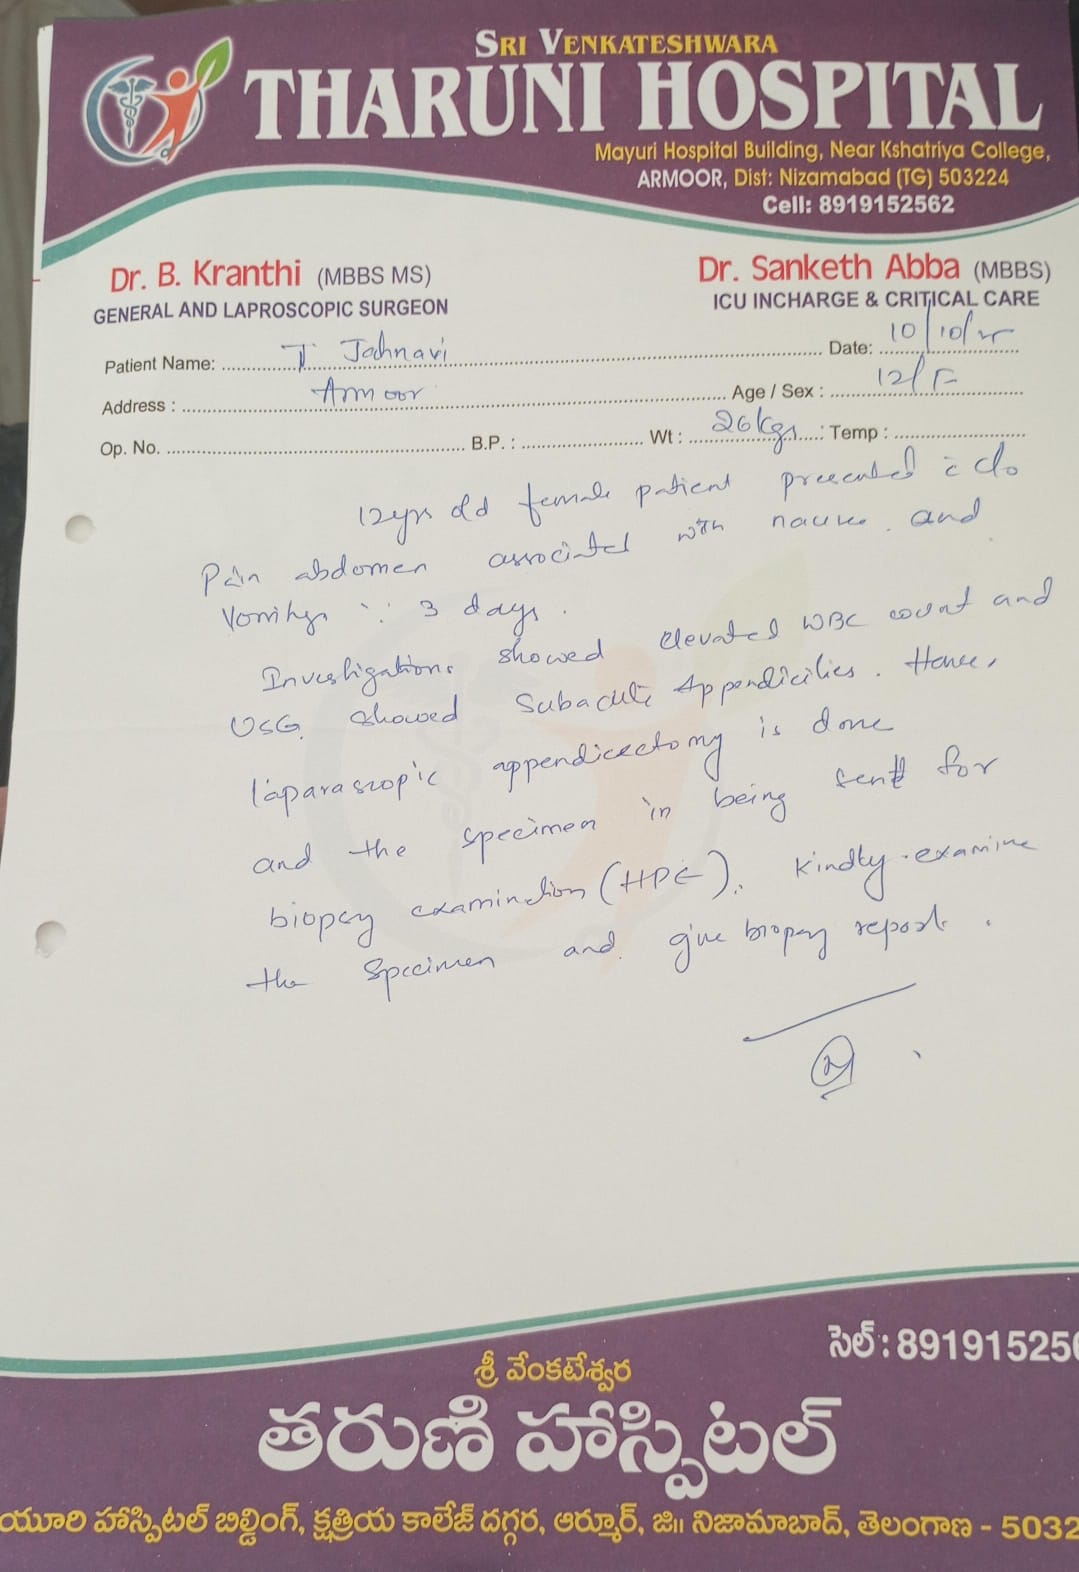 SRI VENKATESHWARA
THARUNI HOSPITAL
Mayuri Hospital Building, Near Kshatriya College,
ARMOOR, Dist: Nizamabad (TG) 503224
Cell: 8919152562
Dr. B. Kranthi (MBBS MS)
GENERAL AND LAPROSCOPIC SURGEON
Dr. Sanketh Abba (MBBS)
ICU INCHARGE & CRITICAL CARE
Patient Name: T. Jahnavi Date: 10/10/25
Address : Armoor Age / Sex : 12/F
Op. No. B.P. : Wt : 26kgs Temp :
12yrs old female patient presented c̄ c/o
Pain abdomen associated with nausea and
Vomitings ∵ 3 days.
Investigations showed elevated WBC count and
USG showed Subacute Appendicities. Hence,
laparascopic appendicectomy is done
and the specimen in being sent for
biopsy examination (HPE). Kindly examine
the specimen and give biopsy report.
సెల్ : 891915256
శ్రీ వేంకటేశ్వర
తరుణి హాస్పిటల్
యూరి హాస్పిటల్ బిల్డింగ్, క్షత్రియ కాలేజ్ దగ్గర, ఆర్మూర్, జి॥ నిజామాబాద్, తెలంగాణ - 5032